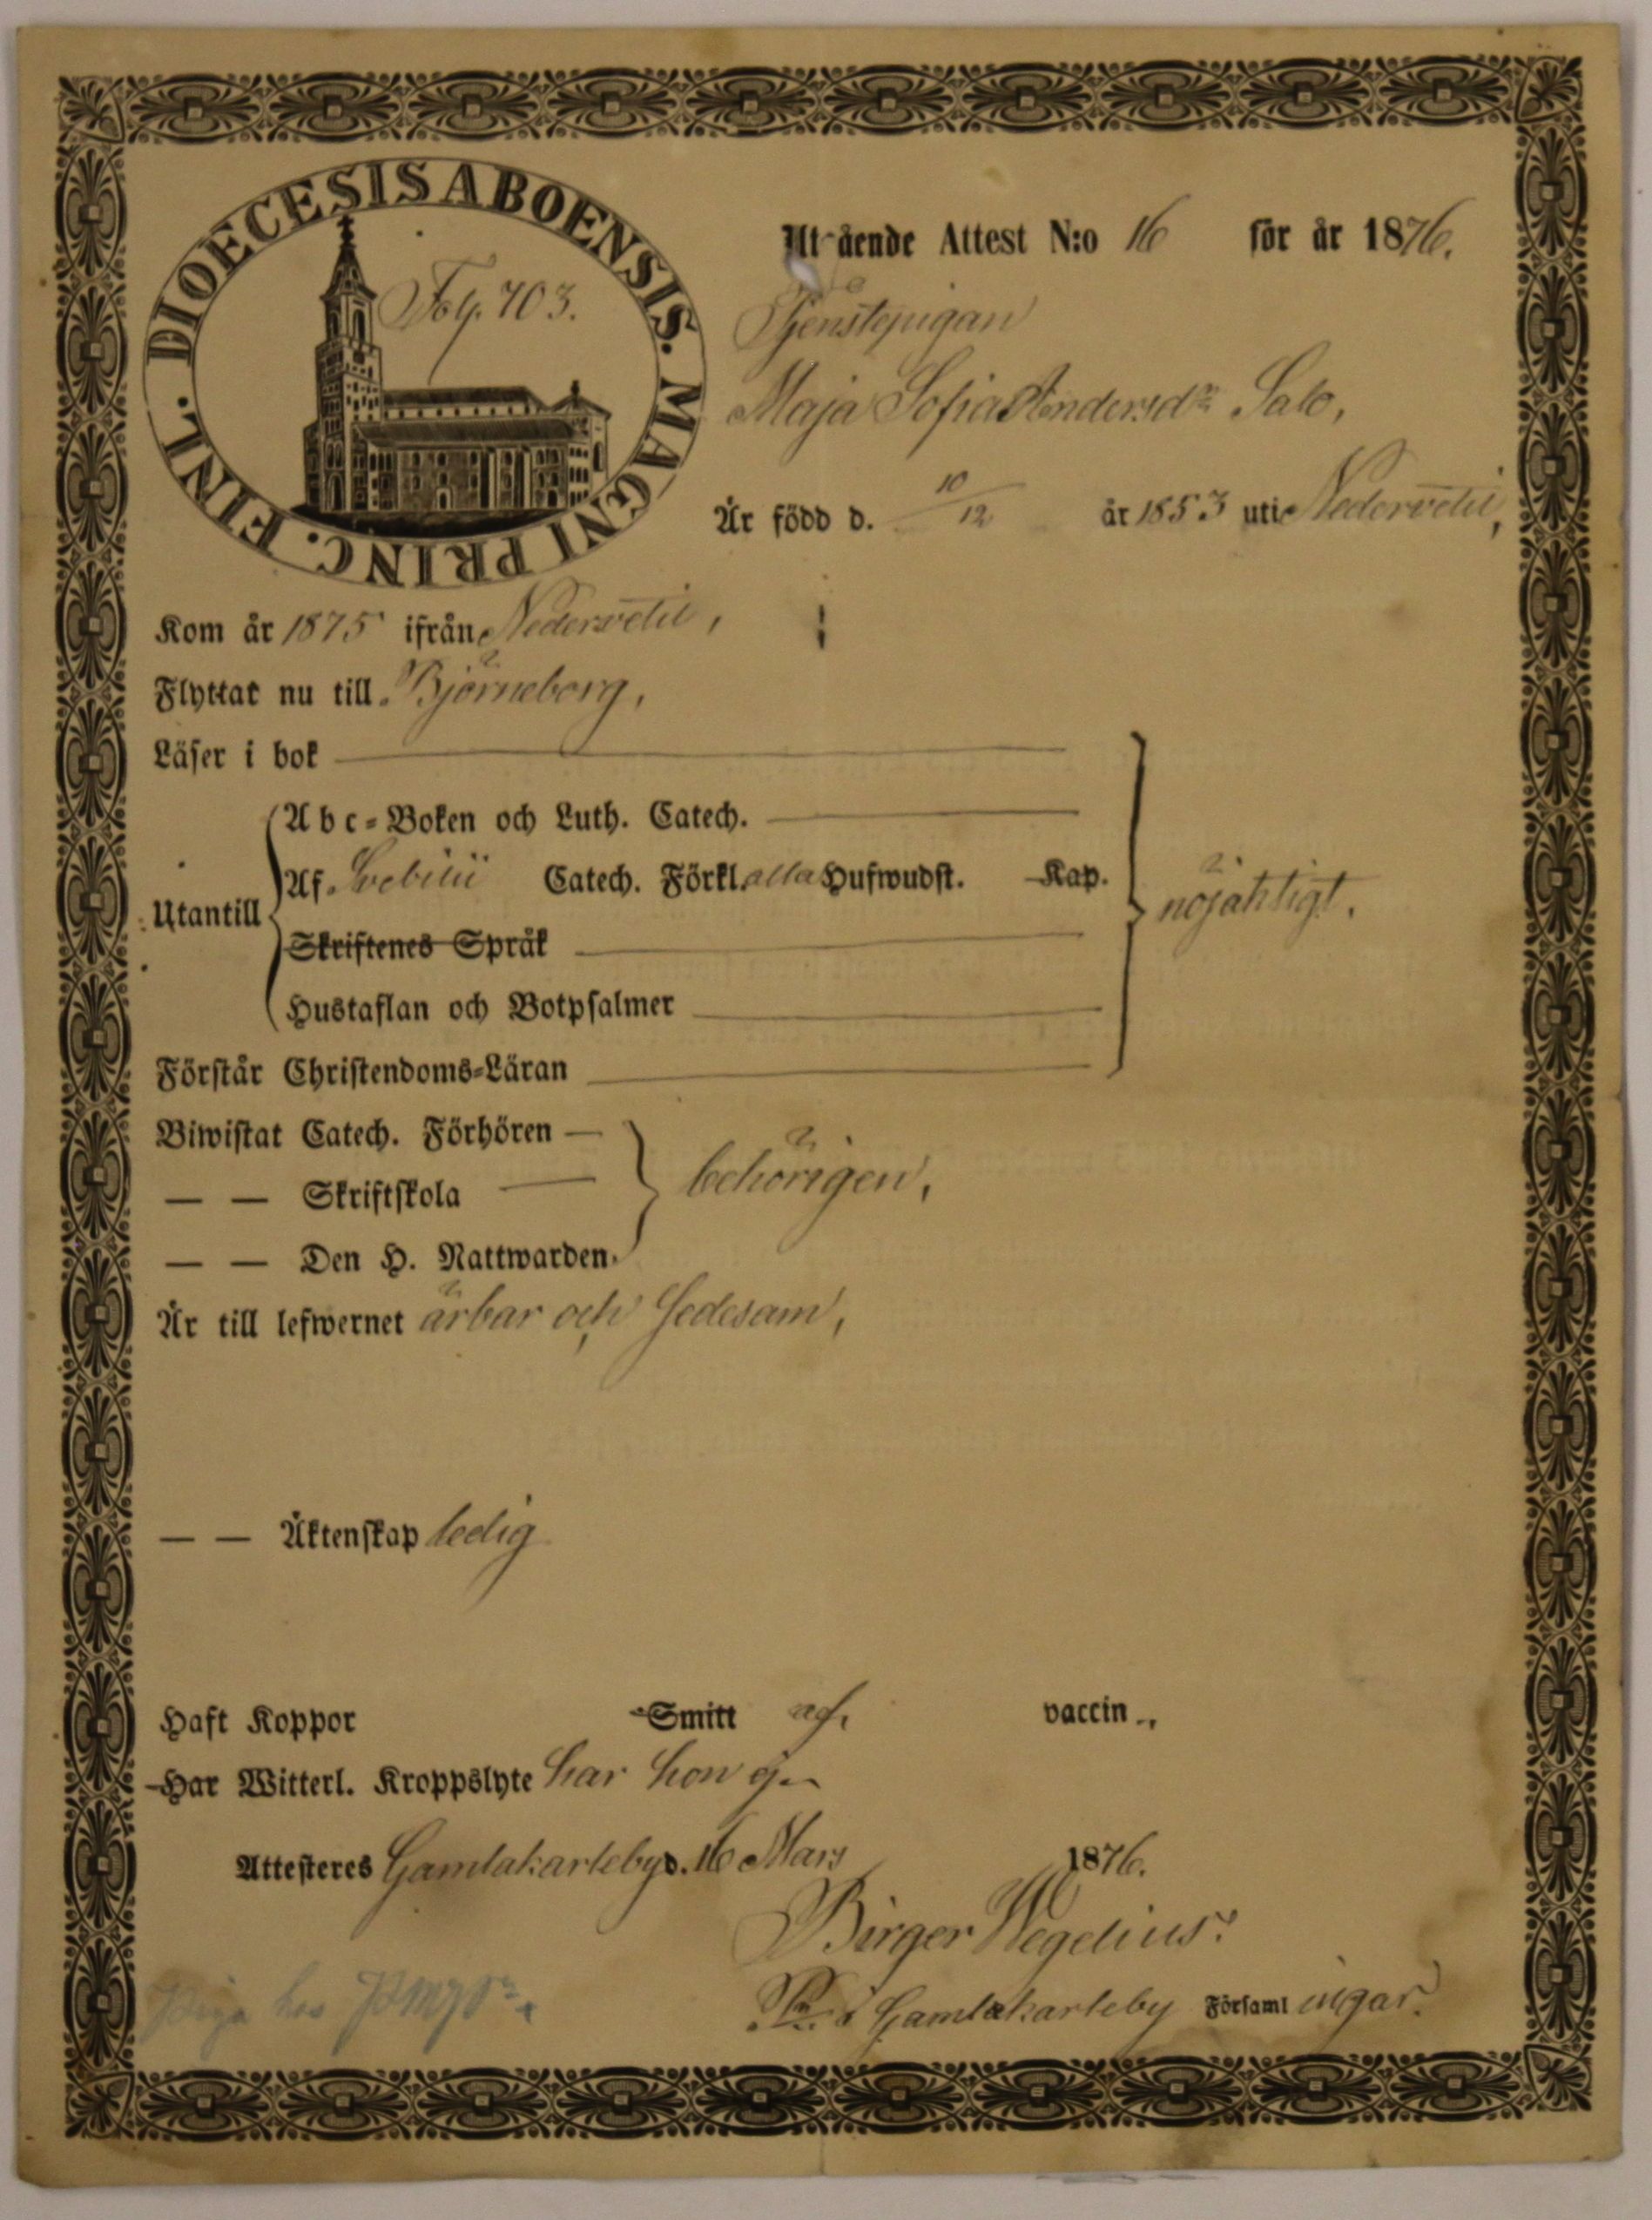 DIOECESIS ABOENSIS. MAGNI PRINC. FINL.
Fol. 703.
Utgående Attest N:o 16 för år 1876.
Tjenstepigan
Maja Sofia Andersdr Salo,
Är född d. 10/12 år 1853 uti Nedervetil,
Kom år 1875 ifrån Nedervetil,
Flyttar nu till Björneborg,
Läser i bok
Abc-Boken och Luth. Catech.
Utantill
Af Svebilii Catech. Förkl. alla Hufwudst. Kap.
nöjaktigt.
Skriftenes Språk
Hustaflan och Botpsalmer
Förstår Christendoms-Läran
Biwistat Catech. Förhören —
— — Skriftskola
behörigen,
— — Den H. Nattwarden
Är till lefwernet ärbar och sedesam,
— — Äktenskap ledig
Haft Koppor Smitt af vaccin.,
Har Witterl. Kroppslyte har hon ej.
Attesteres Gamlakarleby d. 16 Mars 1876.
Birger Wegelius.
i Gamlakarleby Församl ingar.
Piga hos